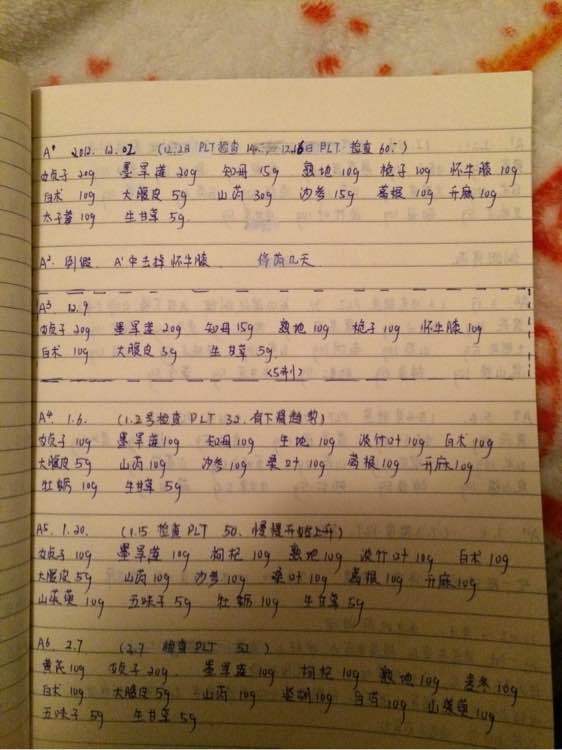 A¹ 2012.12.02 (12.2日 PLT检查14 12.16日 PLT 检查 60)
女贞子 20g 墨旱莲 20g 知母 15g 熟地 10g 栀子 10g 怀牛膝 10g
白术 10g 大腹皮 5g 山药 30g 沙参 15g 葛根 10g 升麻 10g
太子参 10g 生甘草 5g
A² 例假. A¹中去掉怀牛膝. 停药几天
A³ 12.9
女贞子 20g 墨旱莲 20g 知母 15g 熟地 10g 栀子 10g 怀牛膝 10g
白术 10g 大腹皮 5g 生甘草 5g
<5剂>
A⁴ 1.6. (1.2号检查PLT 32. 有下降趋势)
女贞子 10g 墨旱莲 10g 知母 10g 生地 10g 淡竹叶 10g 白术 10g
大腹皮 5g 山药 10g 沙参 10g 桑叶 10g 葛根 10g 升麻 10g
牡蛎 10g 生甘草 5g
A5 1.20. (1.15 检查PLT 50. 慢慢开始上升)
女贞子 10g 墨旱莲 10g 枸杞 10g 熟地 10g 淡竹叶 10g 白术 10g
大腹皮 5g 山药 10g 沙参 10g 桑叶 10g 葛根 10g 升麻 10g
山萸萸 10g 五味子 5g 牡蛎 10g 生甘草 5g
A6 2.7 (2.7 检查PLT 52)
黄芪 10g 女贞子 20g 墨旱莲 10g 枸杞 10g 熟地 10g 10g
白术 10g 大腹皮 5g 山药 10g 柴胡 10g 白芍 10g 山萸萸 10g
五味子 5g 生甘草 5g